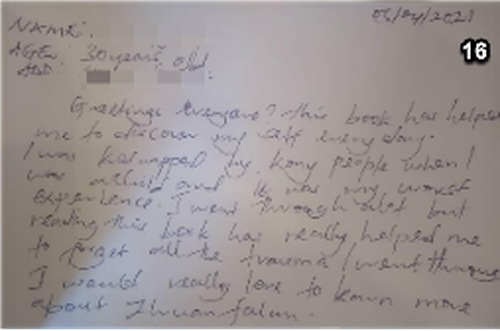 05/04/2021
NAME:
16
AGE: 30 years old
ADD:
Greetings everyone? this book has helped
me to discover my self every day.
I was kidnapped by Kony people when I
was a child and it was my worst
experience. I went through alot but
reading this book has really helped me
to forget all the trauma I went through
I would really love to learn more
about Zhuan falun.